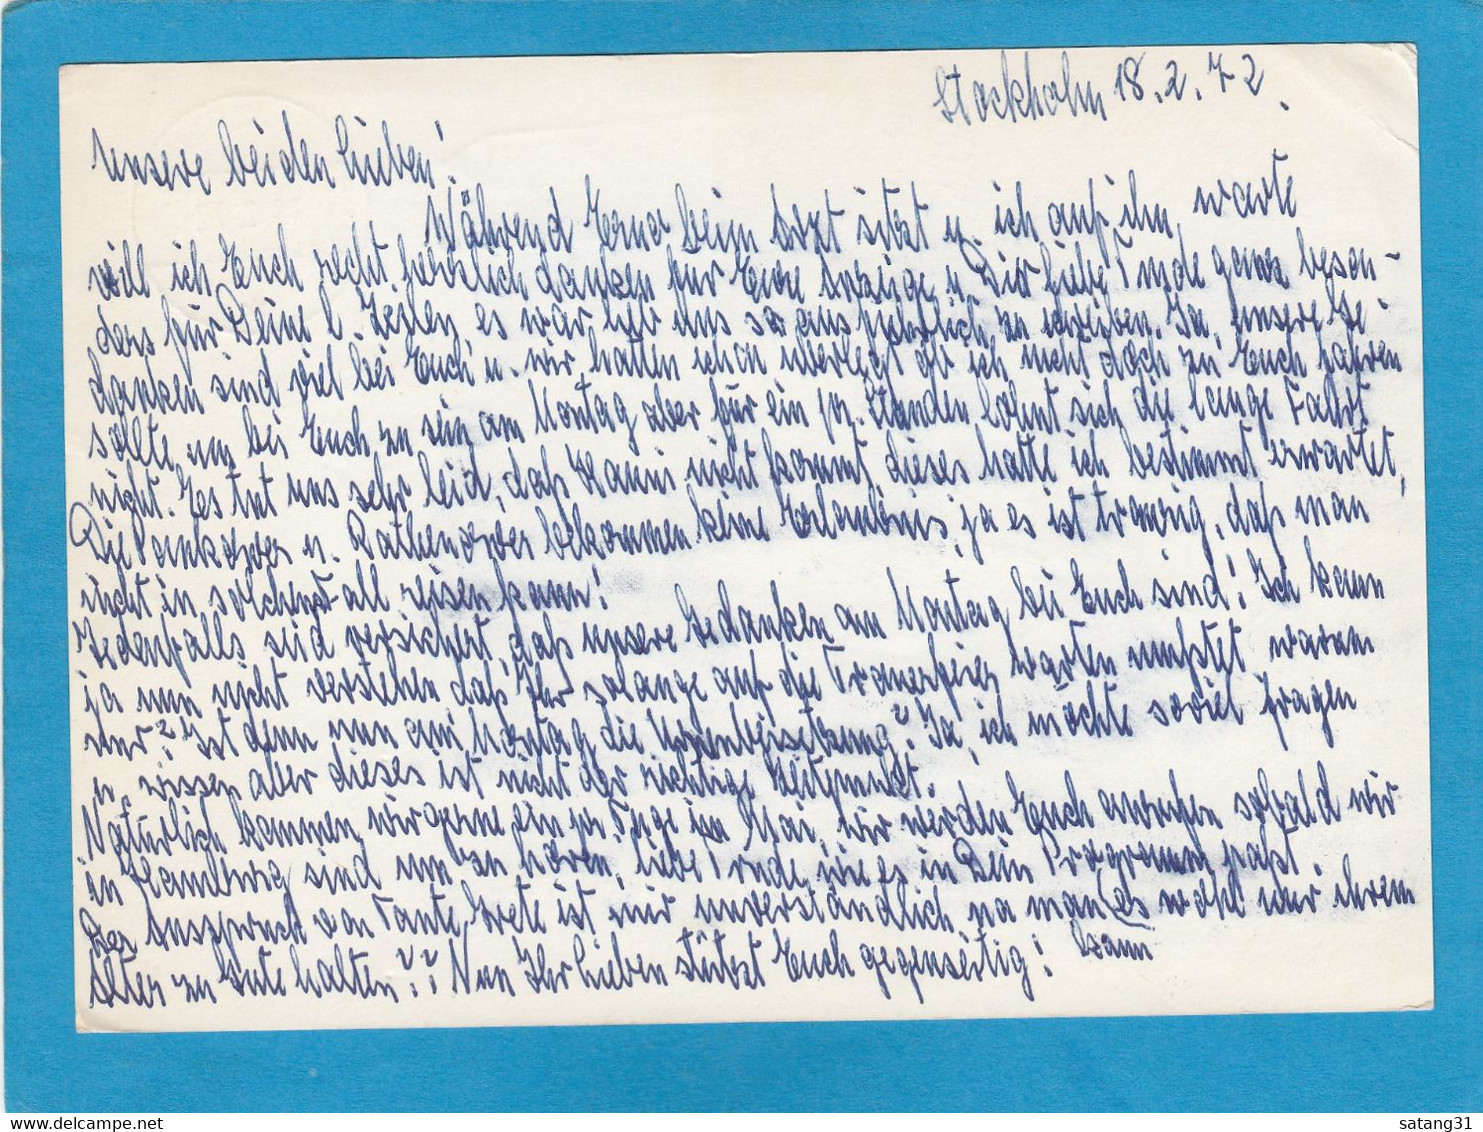 Stockholm 18.2.72.
Unsere beiden Lieben!
Während Erna beim Arzt sitzt u. ich auf ihn warte
will ich Euch recht herzlich danken für Eure Anzeige u. Dir liebe Trude ganz beson-
ders für Deine l. Zeilen, es war lieb uns so ausführlich zu schreiben. Ja, unsere Ge-
danken sind viel bei Euch u. wir hatten schon überlegt ob ich nicht doch zu Euch fahren
sollte um bei Euch zu sein am Montag aber für ein pa. Stunden lohnt sich die lange Fahrt
nicht. Es tut uns sehr leid, daß Hanni nicht kommt, dieses hatte ich bestimmt erwartet,
Die Pankower u. Rathenower bekommen keine Erlaubnis, ja es ist traurig, daß man
nicht in solchem Fall reisen kann!
Jedenfalls seid versichert, daß unsere Gedanken am Montag bei Euch sind! Ich kann
ja nun nicht verstehen daß Ihr solange auf die Trauerfeier warten mußtet warum
nur? Ist denn nun am Montag die Urnenbeisetzung? Ja, ich möchte soviel fragen
u. wissen aber dieses ist nicht der richtige Zeitpunkt.
Natürlich kommen wir gerne ein pa. Tage im Mai, wir werden Euch anrufen sobald wir
in Hamburg sind um zu hören, liebe Trude, wie es in Dein Programm paßt.
Der Ausspruch von Tante Grete ist mir unverständlich na man (es wohl nur ihrem
Alter zu Gute halten?!? Nun Ihr Lieben stützt Euch gegenseitig! kann
satang31